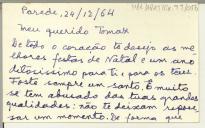 Parede, 24/12/64
Meu querido Tomaz
De todo o coração te desejo as me-
lhores festas de Natal e um ano
deliciosíssimo para ti e para os teus.
Foste sempre um santo. E muito
se tem abusado das tuas grandes
qualidades: não te deixam repou-
sar um momento. De forma que